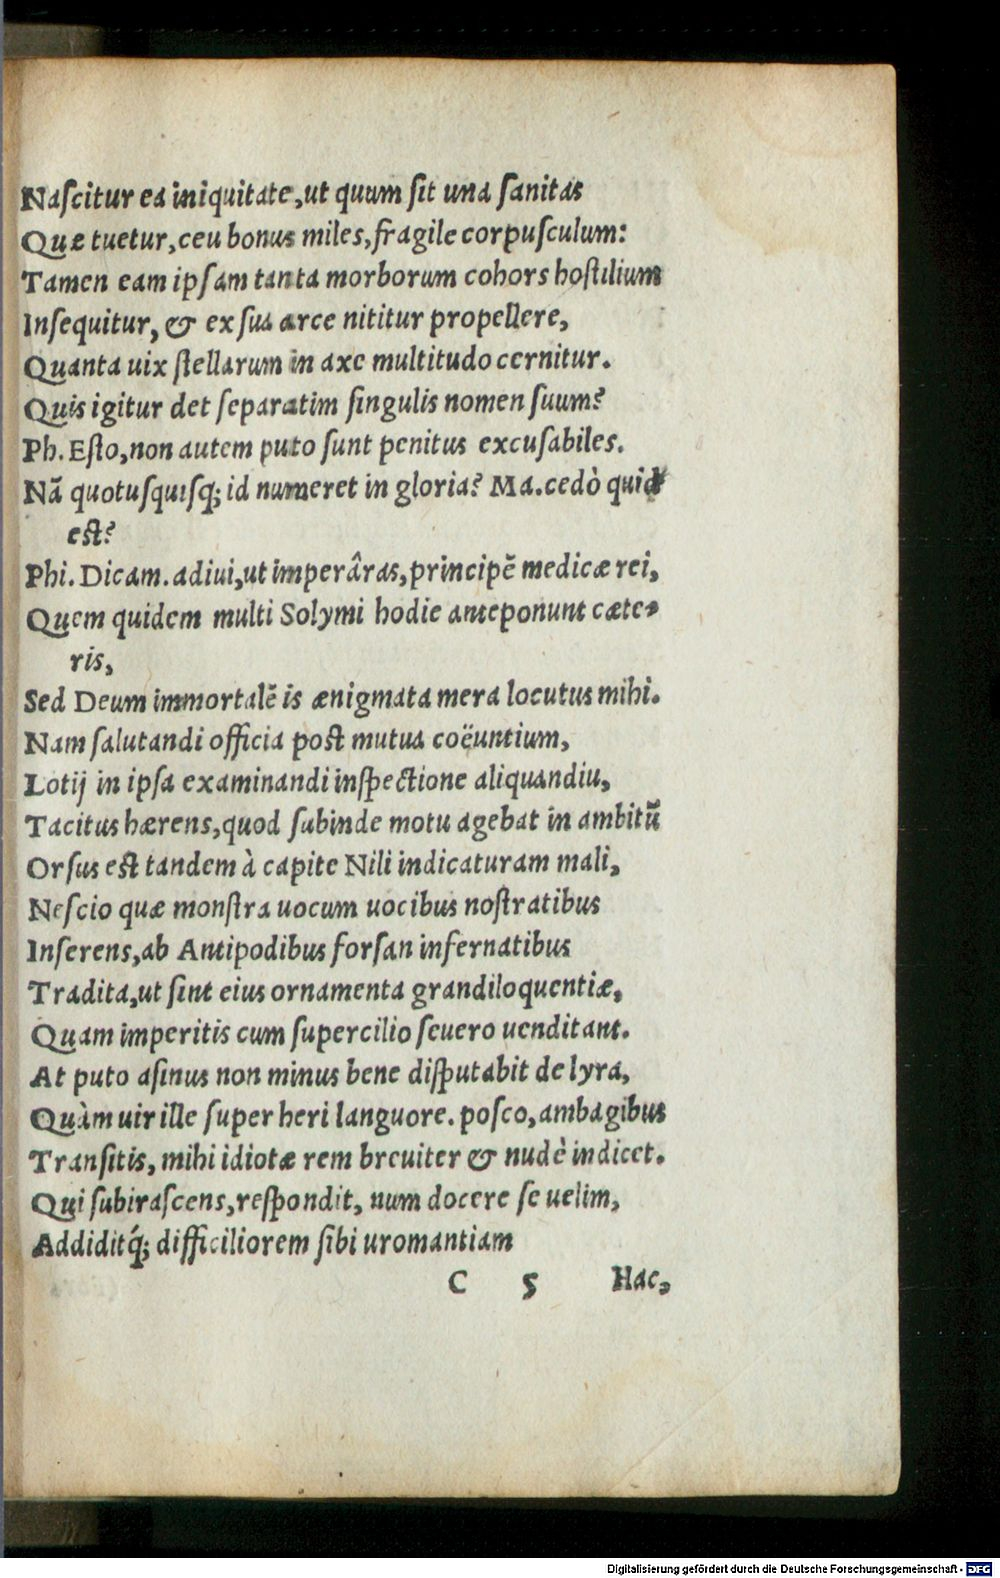 Naſcitur ea iniquitate, ut quum ſit una ſanitas
Quæ tuetur, ceu bonus miles, fragile corpuſculum:
Tamen eam ipſam tanta morborum cohors hoſtilium
Inſequitur, & ex ſua arce nititur propellere,
Quanta uix ſtellarum in axe multitudo cernitur.
Quis igitur det ſeparatim ſingulis nomen ſuum?
Ph. Eſto, non autem puto ſunt penitus excuſabiles.
Nã quotuſquiſq; id numeret in gloria? Ma. cedò quid
eſt?
Phi. Dicam. adiui, ut imperâras, principẽ medicæ rei,
Quem quidem multi Solymi hodie anteponunt cæte-
ris,
Sed Deum immortalẽ is ænigmata mera locutus mihi.
Nam ſalutandi officia poſt mutua coëuntium,
Lotij in ipſa examinandi inſpectione aliquandiu,
Tacitus hærens, quod ſubinde motu agebat in ambitũ
Orſus eſt tandem à capite Nili indicaturam mali,
Neſcio quæ monſtra uocum uocibus noſtratibus
Inſerens, ab Antipodibus forſan infernatibus
Tradita, ut ſint eius ornamenta grandiloquentiæ,
Quam imperitis cum ſupercilio ſeuero uenditant.
At puto aſinus non minus bene diſputabit de lyra,
Quàm uir ille ſuper heri languore. poſco, ambagibus
Tranſitis, mihi idiotæ rem breuiter & nudè indicet.
Qui ſubiraſcens, reſpondit, num docere ſe uelim,
Addiditq́; difficiliorem ſibi uromantiam
C 5 Hac,
Digitalisierung gefördert durch die Deutsche Forschungsgemeinschaft - DFG